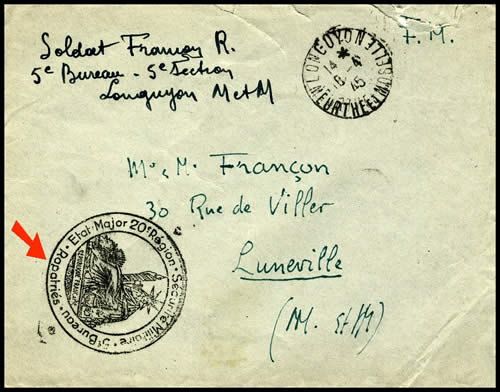 Soldat Françon R.
5e Bureau - 5e Section
Longuyon M et M
F. M.
LONGUYON
14 *
8 - 4
45
MEURTHE ET MOSELLE
M. & M. Françon
30 Rue de Viller
Luneville
(M. et M)
Rapatriés · Etat-Major 20e Région · Sécurité Militaire · 5e Bureau ·